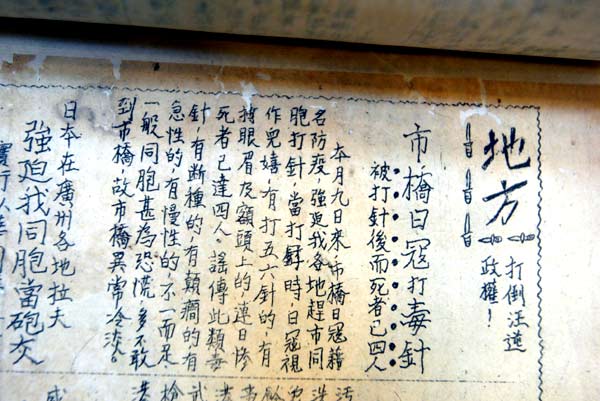 地方
打倒汪逆
政權！
市橋日寇打毒針
被打針後而死者已四人
本月九日來，市橋日寇藉
名防疫，強迫我各地趕市同
胞打針，當打針時，日寇視
作兒嬉，有打五六針的，有
眼眉及額頭上的，連日慘
死者已達四人。謠傳此類毒
針，有断種的，有顛癎的有
急性的，有慢性的，不一而足
一般同胞甚為恐慌，多不敢
到市橋，故市橋異常冷淡。
日本在廣州各地拉夫
強迫我同胞當砲灰
實行以華